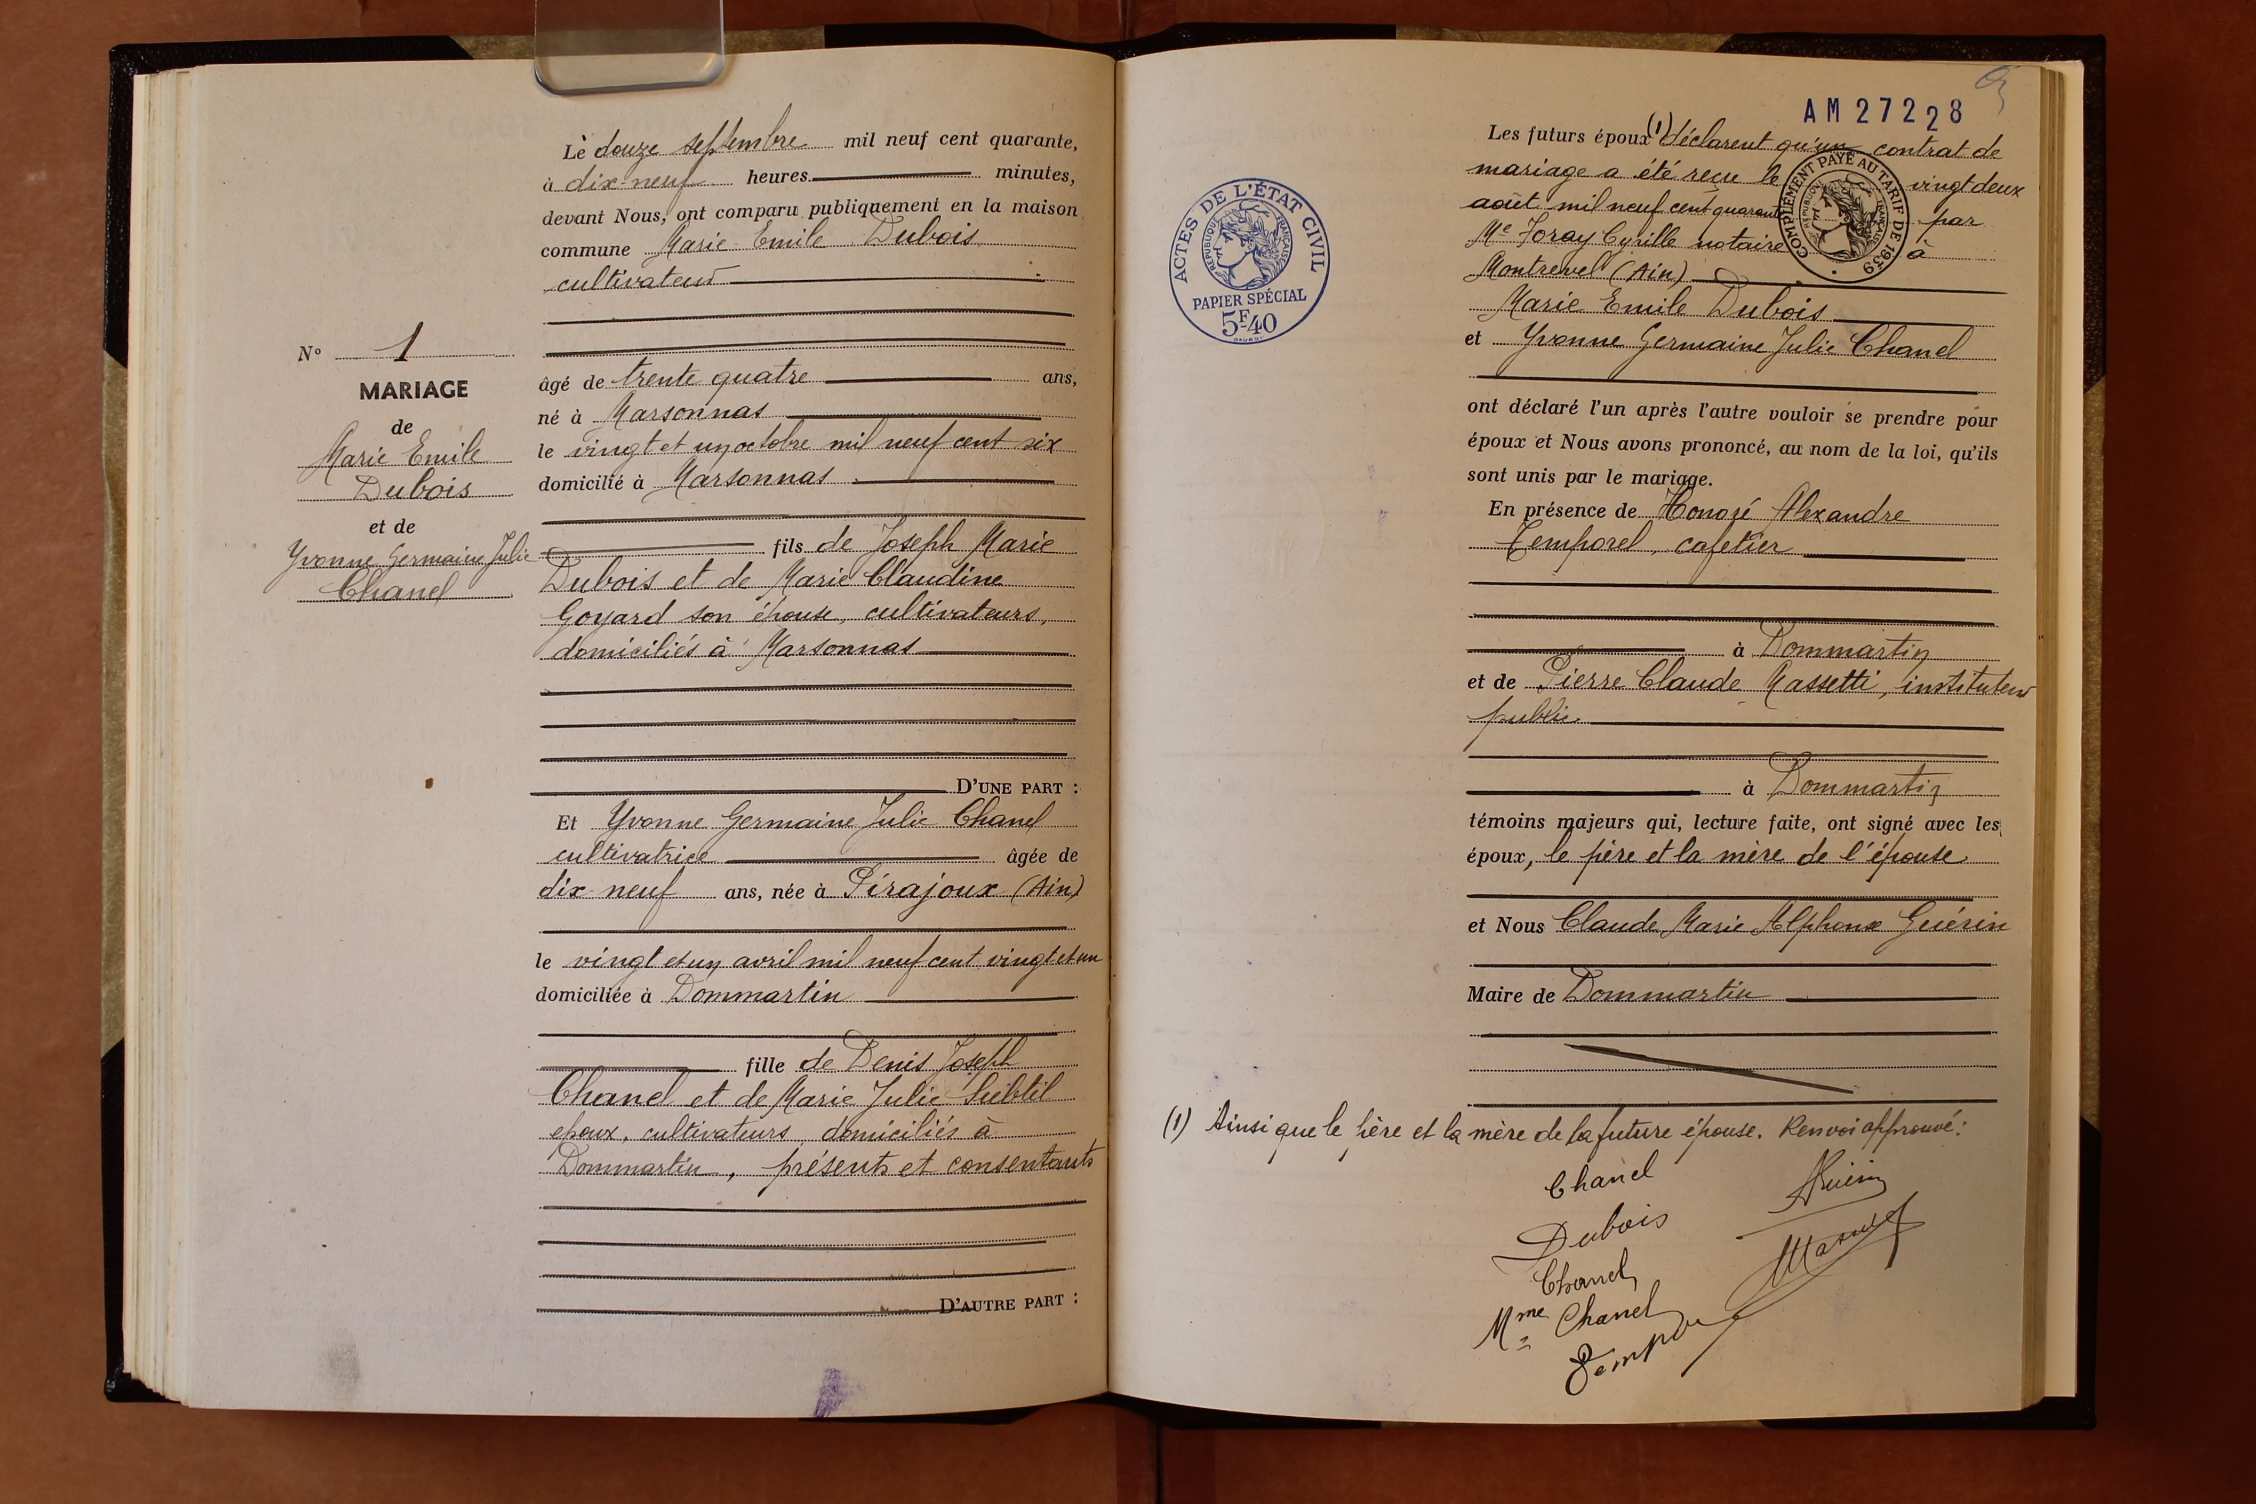 Le douze septembre mil neuf cent quarante,
à dix-neuf heures minutes,
devant Nous, ont comparu publiquement en la maison
commune Marie Emile Dubois
cultivateur
N° 1
MARIAGE
de
Marie Emile
Dubois
et de
Yvonne Germaine Julie
Chanel
âgé de trente quatre ans,
né à Marsonnas
le vingt et un octobre mil neuf cent six
domicilié à Marsonnas
fils de Joseph Marie
Dubois et de Marie Claudine
Goyard son épouse, cultivateurs,
domiciliés à Marsonnas
D'UNE PART :
Et Yvonne Germaine Julie Chanel
cultivatrice âgée de
dix-neuf ans, née à Pirajoux (Ain)
le vingt et un avril mil neuf cent vingt et un
domiciliée à Dommartin
fille de Denis Joseph
Chanel et de Marie Julie Subtil
époux, cultivateurs, domiciliés à
Dommartin, présents et consentants
D'AUTRE PART :
AM 27228
ACTES DE L'ÉTAT CIVIL
RÉPUBLIQUE FRANÇAISE
PAPIER SPÉCIAL
5F40
COMPLÉMENT PAYÉ AU TARIF DE 1939
RÉPUBLIQUE FRANÇAISE
Les futurs époux (1) déclarent qu'un contrat de
mariage a été reçu le vingt deux
août mil neuf cent quarante par
Me Foray Cyrille notaire à
Montrevel (Ain)
Marie Emile Dubois
et Yvonne Germaine Julie Chanel
ont déclaré l'un après l'autre vouloir se prendre pour
époux et Nous avons prononcé, au nom de la loi, qu'ils
sont unis par le mariage.
En présence de Honoré Alexandre
Temporel, cafetier
à Dommartin
et de Pierre Claude Massetti, instituteur
public
à Dommartin
témoins majeurs qui, lecture faite, ont signé avec les
époux, le père et la mère de l'épouse
et Nous Claude Marie Alphonse Guérin
Maire de Dommartin
(1) Ainsi que le père et la mère de la future épouse. Renvoi approuvé :
Chanel
Guérin
Dubois
Chanel
Mme Chanel